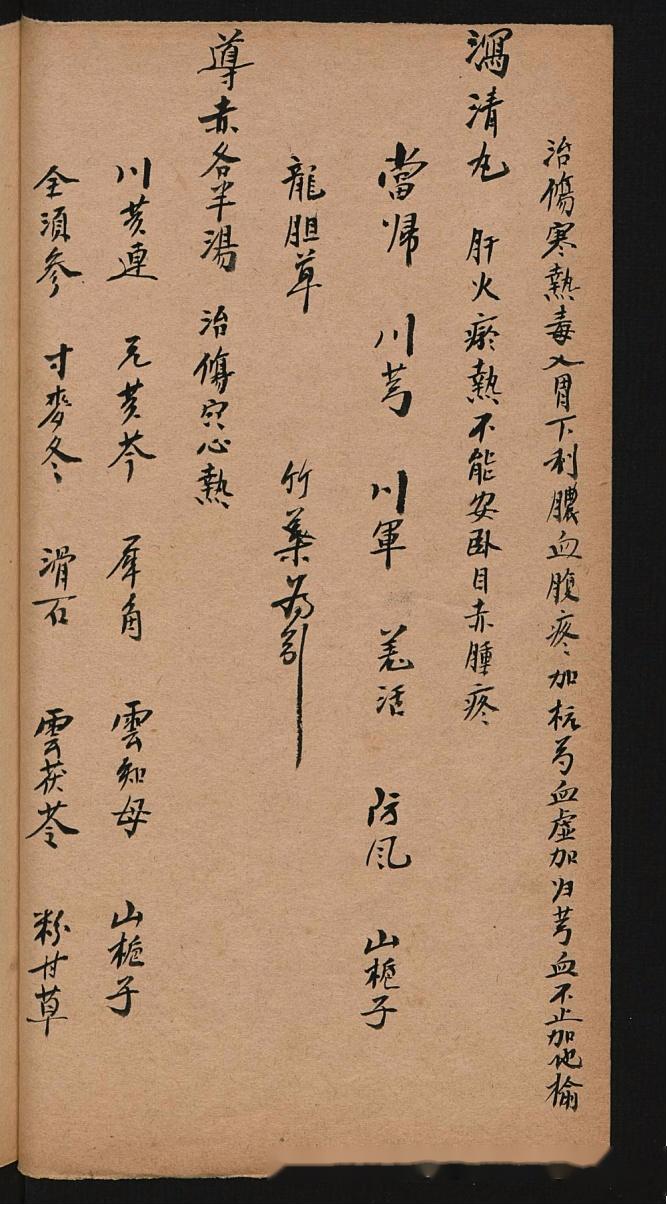 治傷寒熱毒入胃下利膿血腹疼加杭芍血虛加归芎血不止加地榆
瀉清丸 肝火瘀熱不能安卧目赤腫疼
當歸 川芎 川軍 羌活 防风 山梔子
龍胆草 竹葉為引
導赤各半湯 治傷寒心熱
川黄連 元黄芩 犀角 雲知母 山梔子
全須參 寸麥冬 滑石 雲茯苓 粉甘草